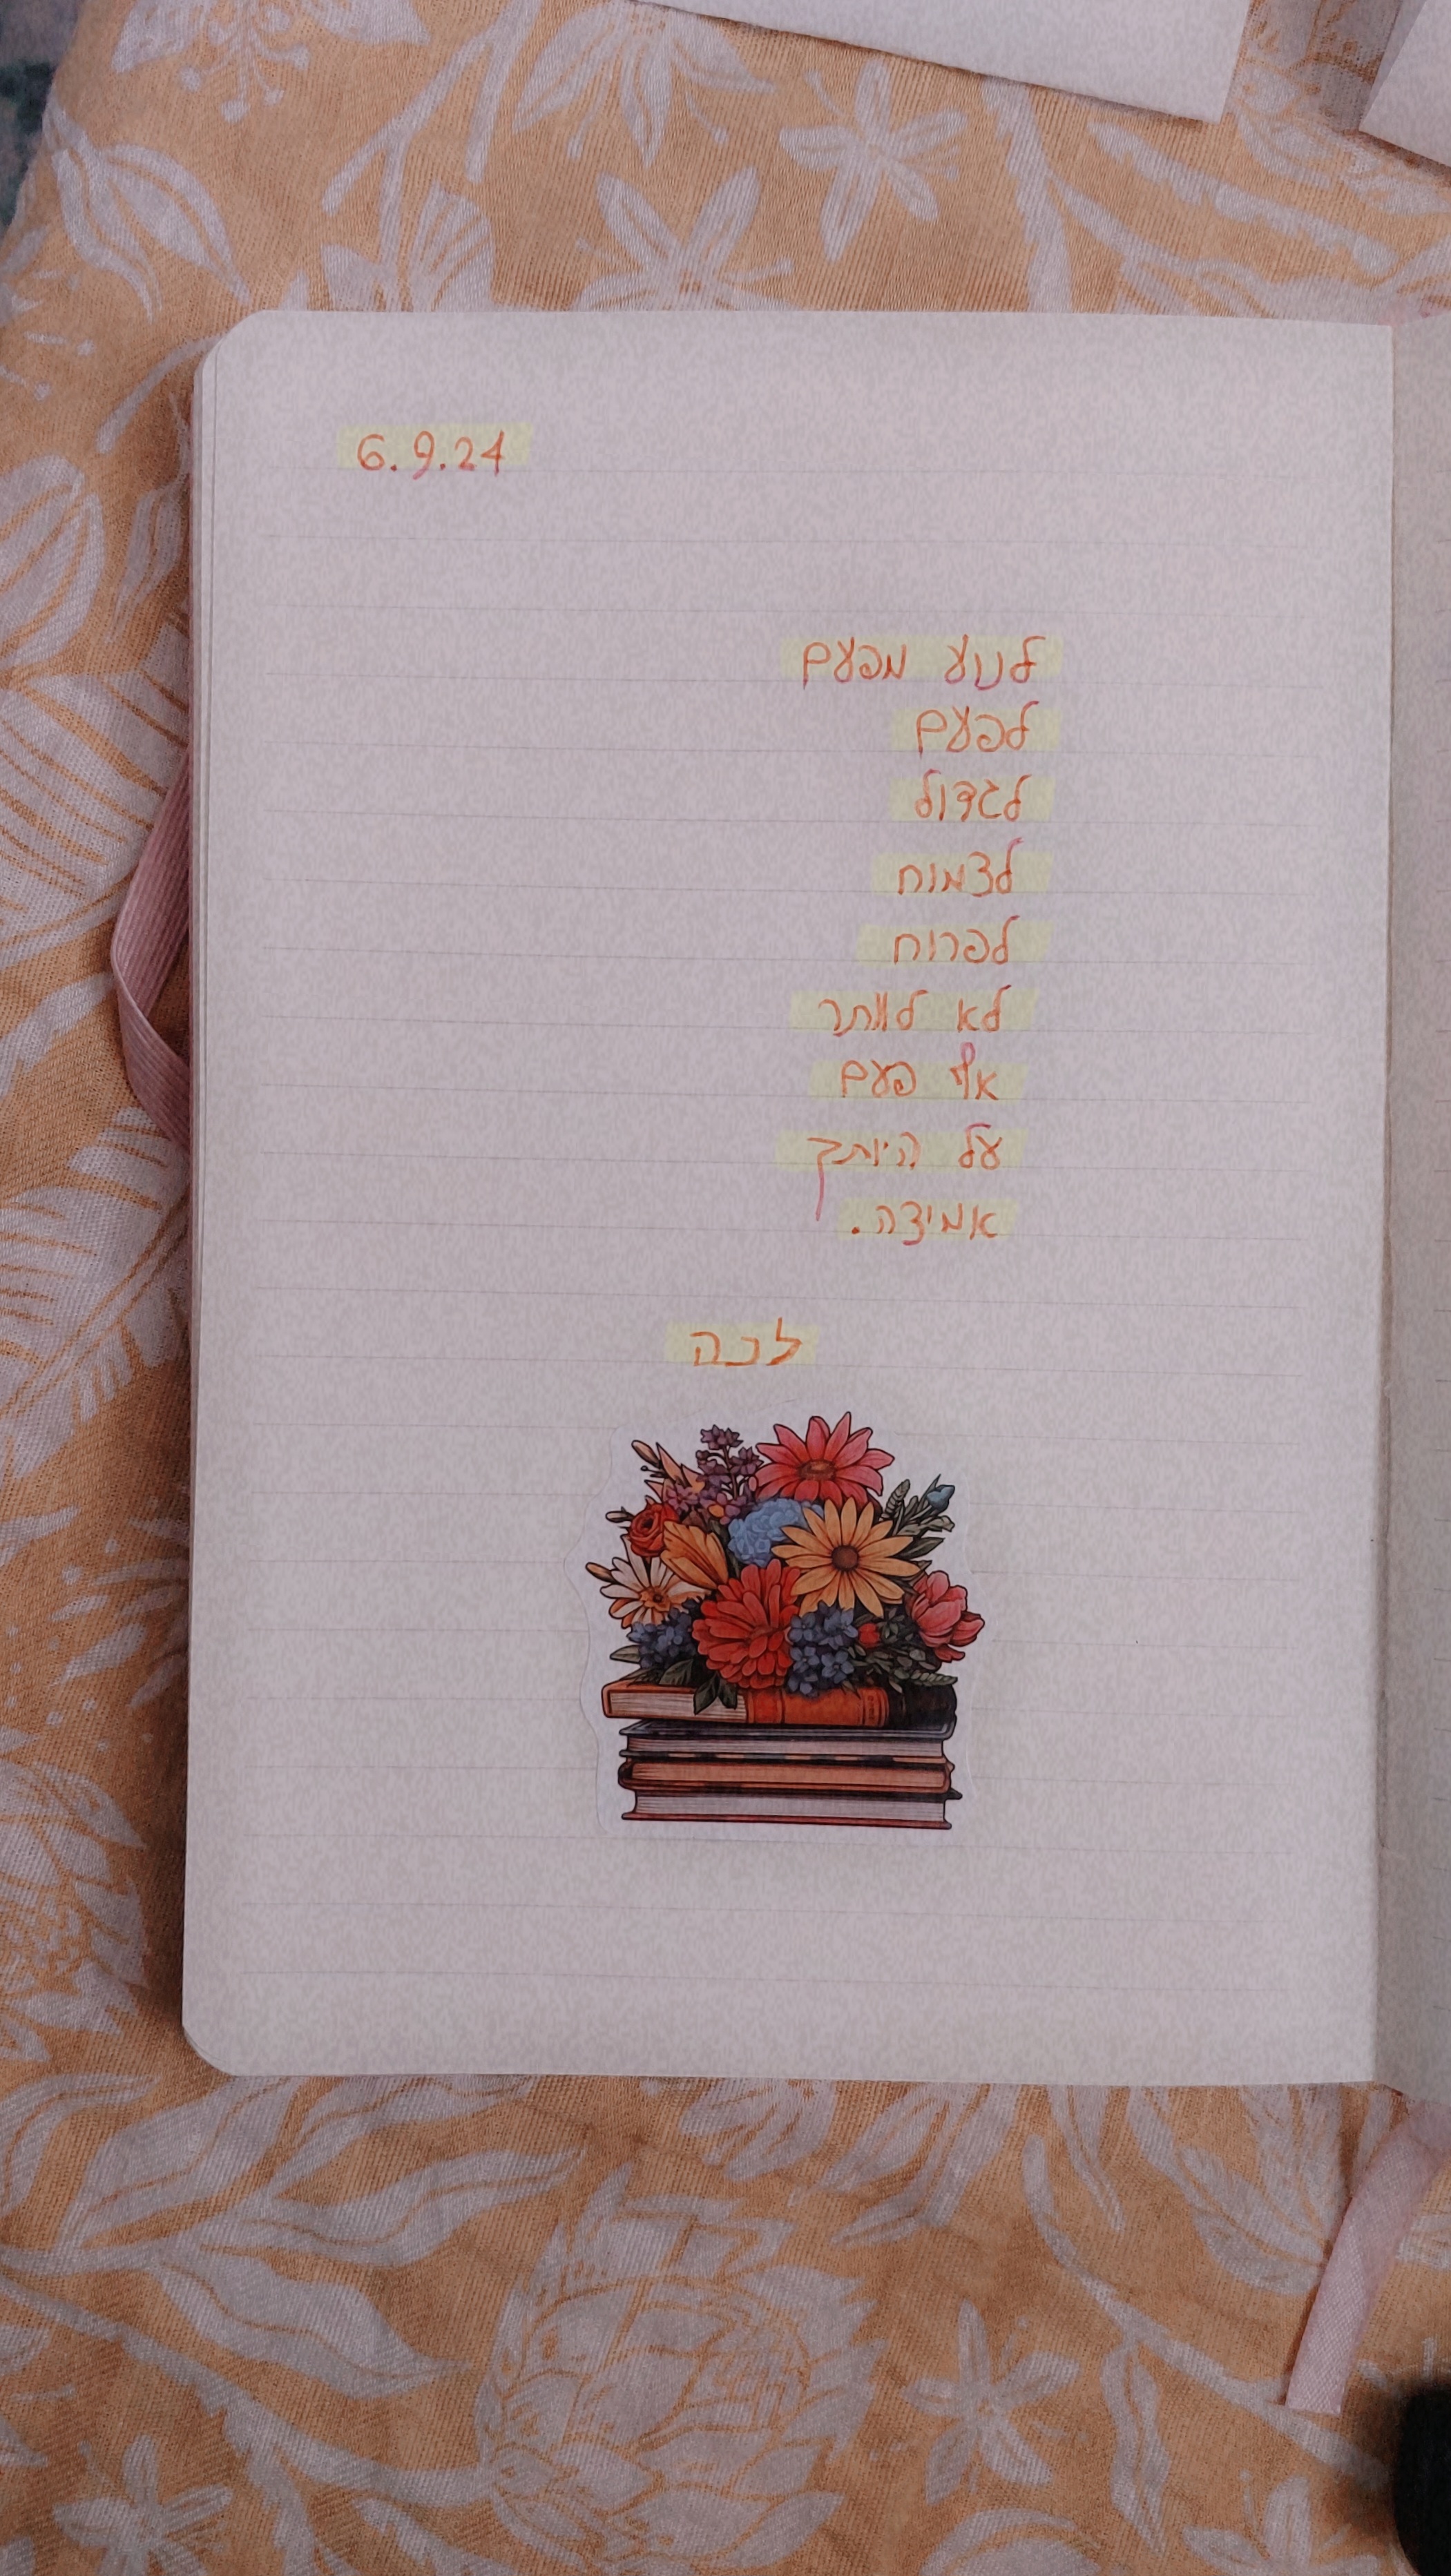 6.9.24
לנוע מפעם
לפעם
לגדול
לצמוח
לפרוח
לא לוותר
אף פעם
על היותך
אמיצה.
לכה